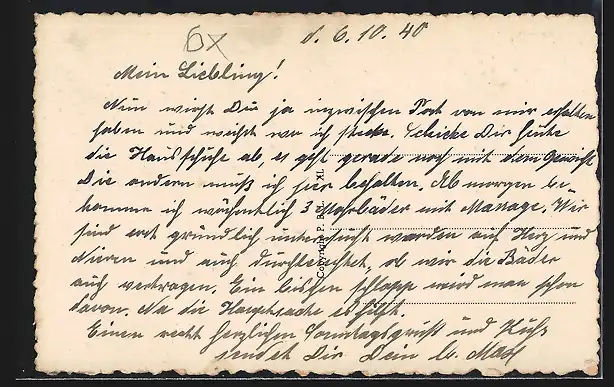 6x
d. 6.10.40
Mein Liebling!
Nun wirst Du ja inzwischen Post von mir erhalten
haben und weißt wo ich stecke. Schicke Dir heute
die Hausschuhe ab, es geht gerade noch mit dem Gewicht
Die andern muß ich hier behalten. Ab morgen be-
komme ich wöchentlich 3 Moorbäder mit Massage. Wir
sind erst gründlich untersucht worden auf Herz und
Nieren und auch durchleuchtet, ob wir die Bäder
auch vertragen. Ein bischen schlapp wird man schon
davon. Na die Hauptsache es hilft.
Einen recht herzlichen Sonntagsgruß und Kuß
sendet Dir Dein lb.
Copyright P.